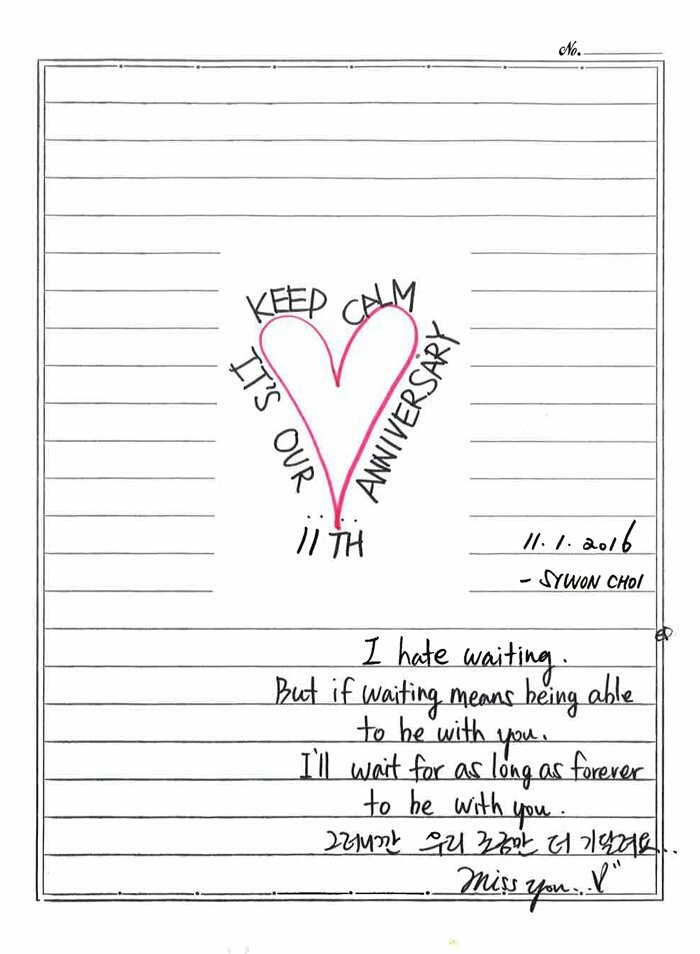 No.
KEEP CALM
IT'S OUR
ANNIVERSARY
11TH
11. 1. 2016
- SIWON CHOI
I hate waiting.
But if waiting means being able
to be with you.
I'll wait for as long as forever
to be with you.
그러니깐 우리 조금만 더 기달려요...
Miss you..